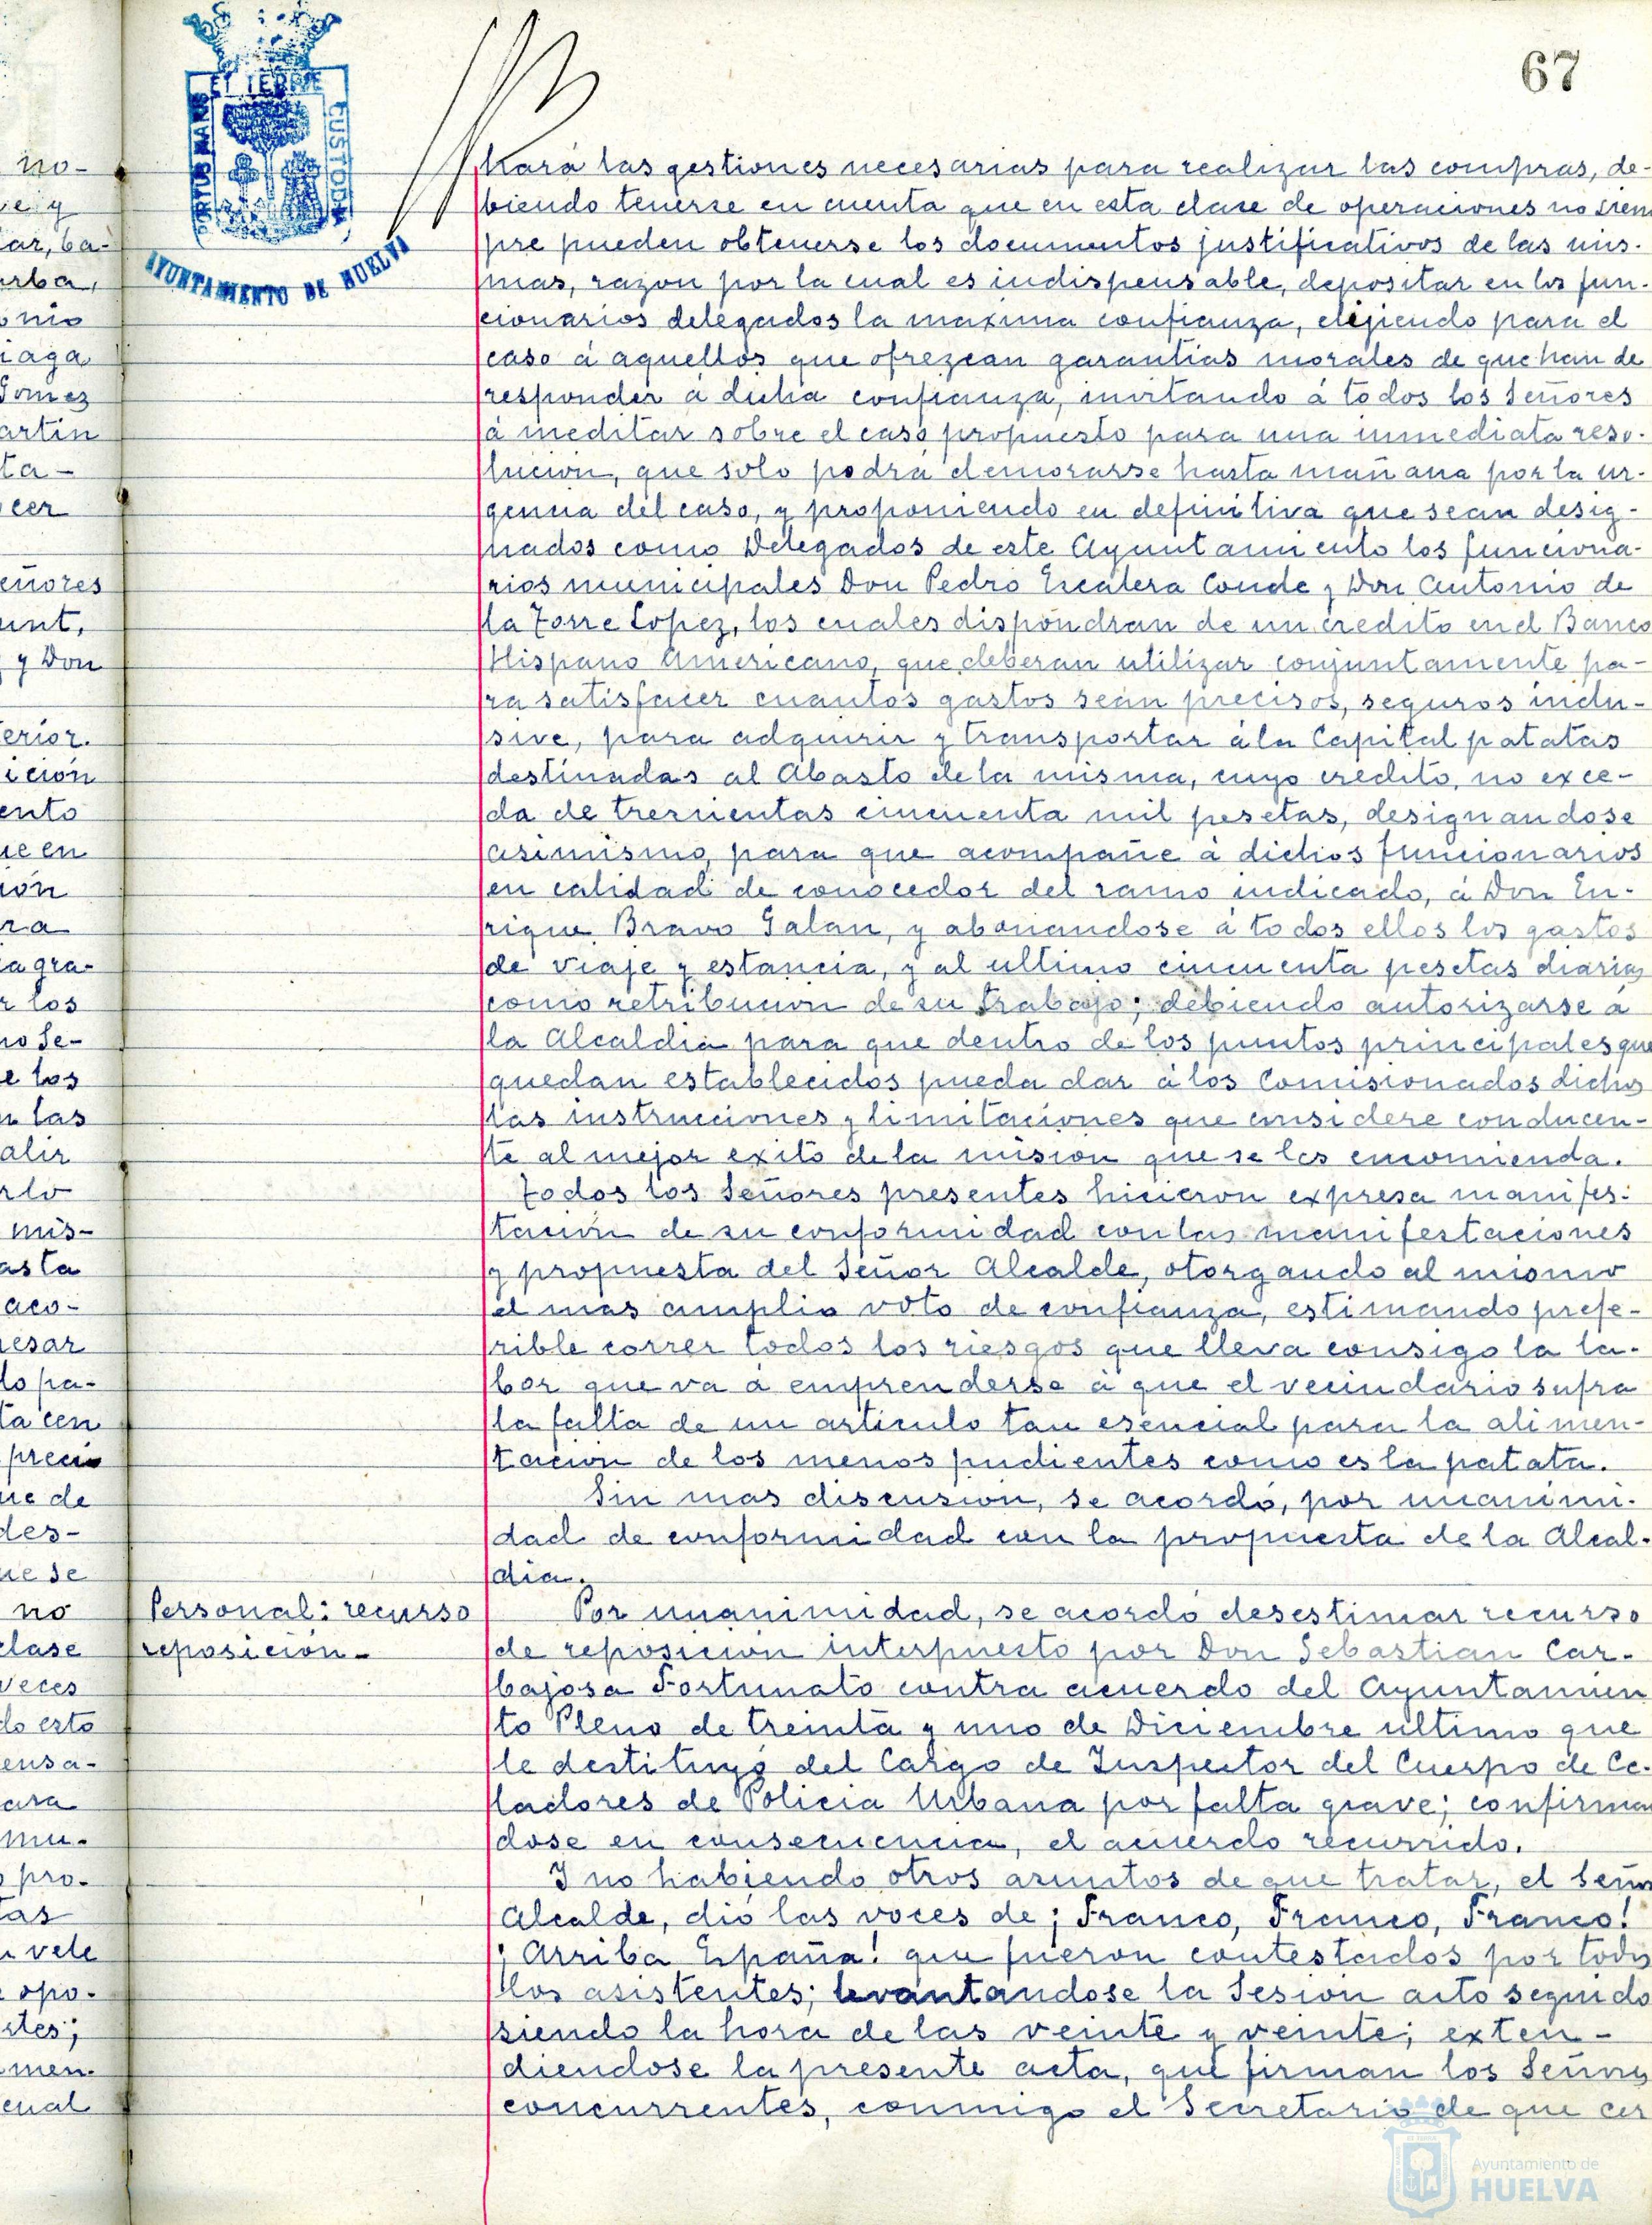 67
PORTUS MARIS ET TERRE CUSTODIA
AYUNTAMIENTO DE HUELVA
no-
ve y
ar, ba-
arba,
onio
iaga
Gomez
artin
ta-
cer
eñores
unt,
y Don
erior.
ición
ento
ue en
ión
ra
a gra-
r los
no Se-
e los
n las
alir
rlo
mis-
asta
aco-
resar
lo pa-
ta cen
precio
ue de
des-
ue se
no
clase
veces
do esto
ensa-
ara
mu-
o pro-
tas
n vele
e opo-
rtes;
men-
cual
hará las gestiones necesarias para realizar las compras, de-
biendo tenerse en cuenta que en esta clase de operaciones no siem
pre pueden obtenerse los documentos justificativos de las mis-
mas, razon por la cual es indispensable, depositar en los fun-
cionarios delegados la maxima confianza, elijiendo para el
caso á aquellos que ofrezcan garantias morales de que han de
responder á dicha confianza, invitando á todos los Señores
á meditar sobre el caso propuesto para una inmediata reso-
lucion, que solo podrá demorarse hasta mañana por la ur-
gencia del caso, y proponiendo en definitiva que sean desig-
nados como Delegados de este Ayuntamiento los funciona-
rios municipales Don Pedro Escalera Conde y Don Antonio de
la Torre Lopez, los cuales dispondran de un credito en el Banco
Hispano Americano, que deberan utilizar conjuntamente pa-
ra satisfacer cuantos gastos sean precisos, seguros inclu-
sive, para adquirir y transportar á la Capital patatas
destinadas al Abasto de la misma, cuyo credito, no exce-
da de trescientas cincuenta mil pesetas, designandose
asimismo, para que acompañe á dichos funcionarios
en calidad de conocedor del ramo indicado, á Don En-
rique Bravo Galan, y abonandose á todos ellos los gastos
de viaje y estancia, y al ultimo cincuenta pesetas diarias
como retribucion de su trabajo; debiendo autorizarse á
la Alcaldia para que dentro de los puntos principales que
quedan establecidos pueda dar á los Comisionados dichos
las instrucciones y limitaciones que considere conducen-
te al mejor exito de la mision que se les encomienda.
Todos los Señores presentes hicieron expresa manifes-
tación de su conformidad con las manifestaciones
y propuesta del Señor Alcalde, otorgando al mismo
el mas amplio voto de confianza, estimando prefe-
rible correr todos los riesgos que lleva consigo la la-
bor que va á emprenderse á que el vecindario sufra
la falta de un articulo tan esencial para la alimen-
tacion de los menos pudientes como es la patata.
Sin mas discusion, se acordó, por unanimi-
dad de conformidad con la propuesta de la Alcal-
dia.
Personal: recurso
reposición-
Por unanimidad, se acordó desestimar recurso
de reposicion interpuesto por Don Sebastian Car-
bajosa Fortunato contra acuerdo del Ayuntamien
to Pleno de treinta y uno de Diciembre último que
le destituyó del Cargo de Inspector del Cuerpo de Ce-
ladores de Policia Urbana por falta grave; confirman
dose en consecuencia, el acuerdo recurrido.
Y no habiendo otros asuntos de que tratar, el Señor
Alcalde, dió las voces de ¡Franco, Franco, Franco!
¡Arriba España! que fueron contestados por todos
los asistentes; levantandose la Sesion acto seguido
siendo la hora de las veinte y veinte; exten-
diendose la presente acta, que firman los Señores
concurrentes, conmigo el Secretario de que cer
Ayuntamiento de
HUELVA